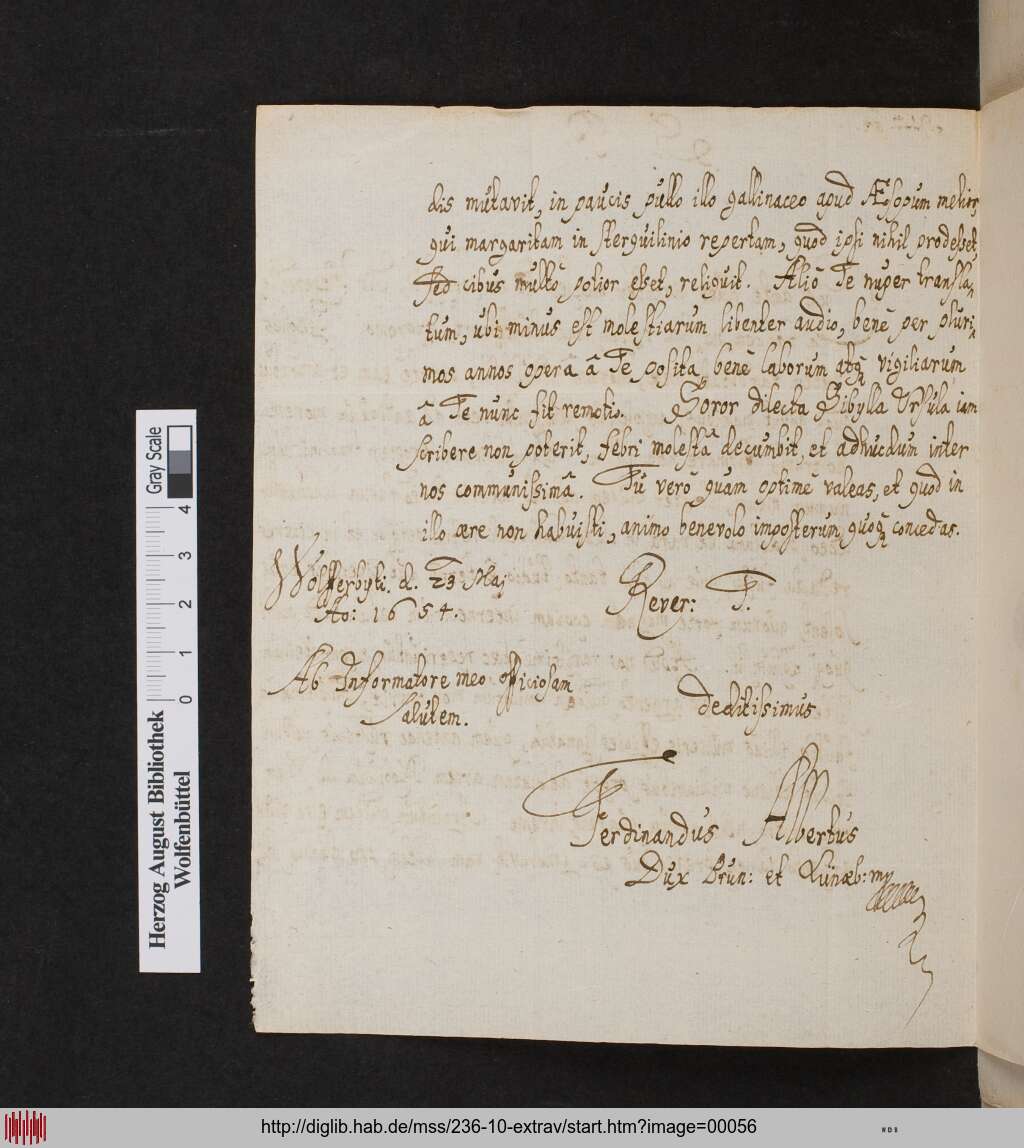 dis mutavit, in paucis pullo illo gallinaceo apud Æsopum melior,
qui margaritam in sterquilinio repertam, quod ipsi nihil prodesset,
sed cibus multò potior esset, reliquit. Aliò Te nuper transla-
tum, ubi minus est molestiarum libenter audio, benè per pluri-
mos annos opera â Te posita, benè laborum atq; vigiliarum
â Te nunc fit remotio. Soror dilecta Sibylla Ursula iam
scribere non poterit, febri molestâ decumbit, et adhucdum inter
nos communissimâ. Tu verò quam optimè valeas, et quod in
illo ære non habuisti, animo benevolo imposterum quoq; concedas.
Wolfferbyti. d. 23 Maj
Ao: 1654.
Rever: T.
Ab Informatore meo officiosam
Salutem.
deditissimus
Ferdinandus Albertus
Dux Brun: et Lünæb: mp
Herzog August Bibliothek
Wolfenbüttel
0 1 2 3 4
Gray Scale
http://diglib.hab.de/mss/236-10-extrav/start.htm?image=00056
WDB